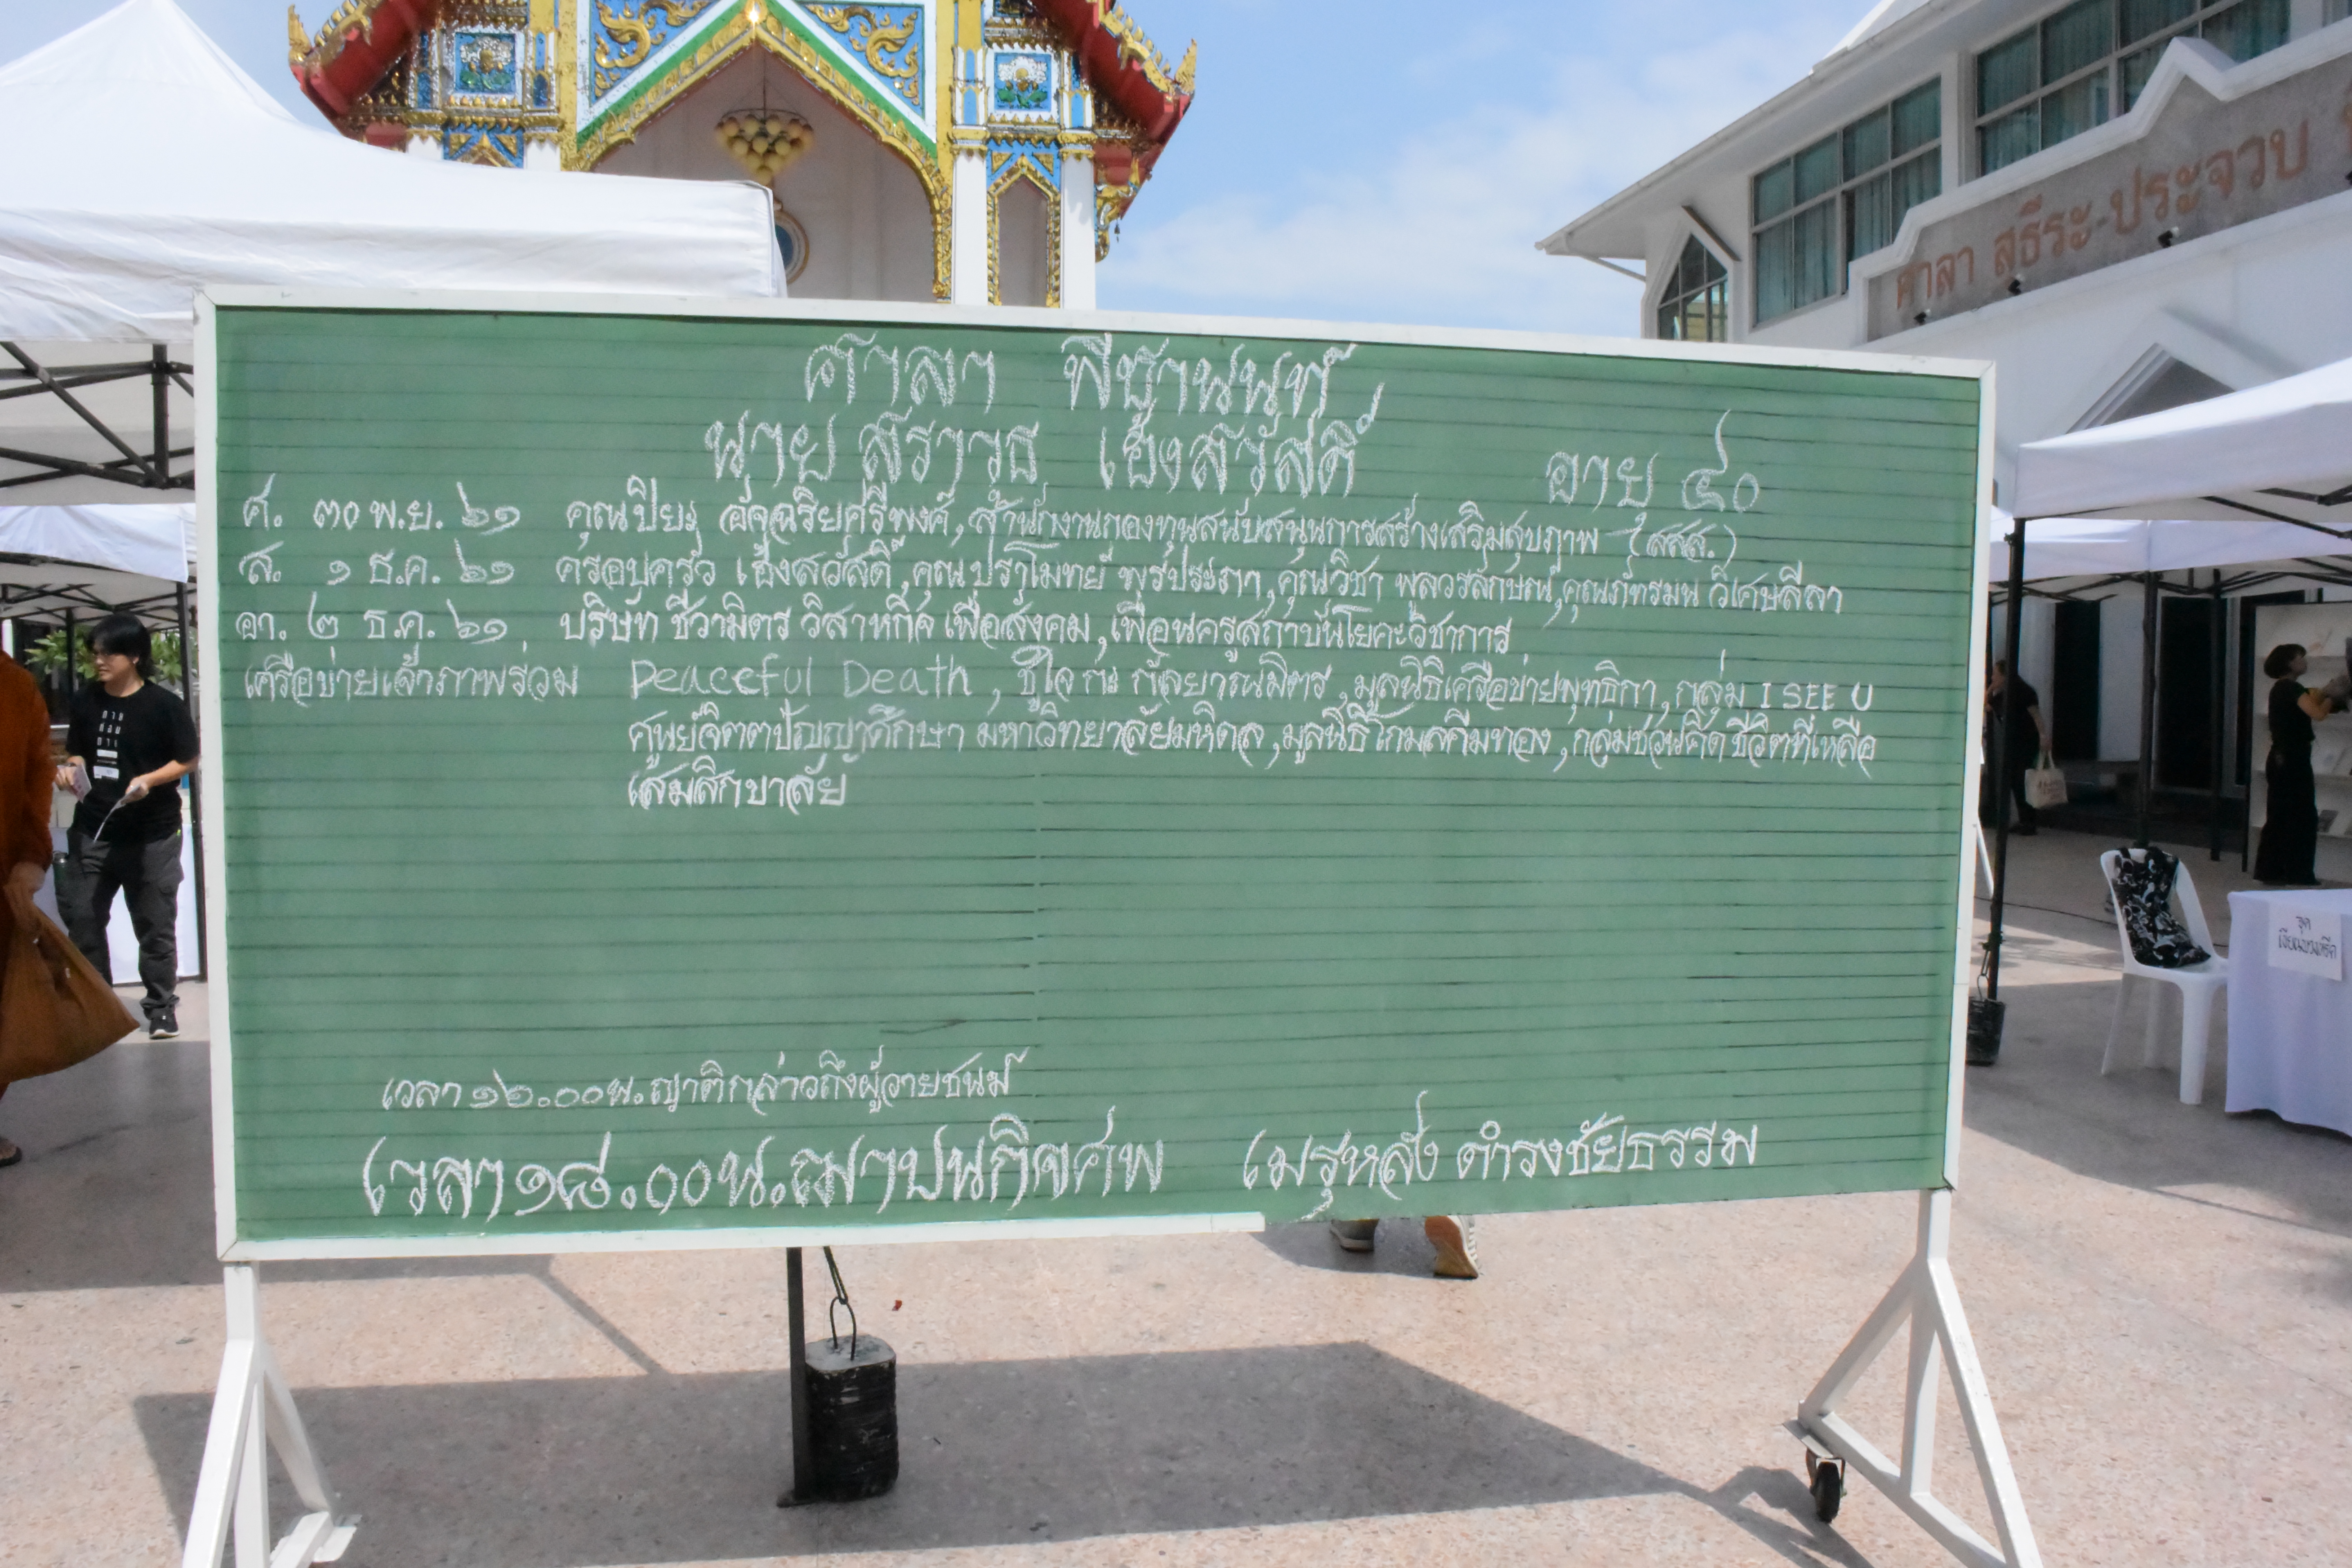 ศาลา สถิระ-ประจวบ
ศาลา พีชานนท์
นาย สราวุธ เฮ้งสวัสดิ์ อายุ ๔๐
ศ. ๓๐ พ.ย. ๖๑ คุณปิยะ อัจฉริยศรีพงศ์, สำนักงานกองทุนสนับสนุนการสร้างเสริมสุขภาพ (สสส.)
ส. ๑ ธ.ค. ๖๑ ครอบครัว เฮ้งสวัสดิ์, คุณปราโมทย์ พูรประภา, คุณวิชา พูลวรลักษณ์, คุณภัทรมน วิเศษลีลา
อา. ๒ ธ.ค. ๖๑ บริษัท ชีวามิตร วิสาหกิจ เพื่อสังคม, เพื่อนครูสถาบันโยคะวิชาการ
เครือข่ายเจ้าภาพร่วม Peaceful Death, ชูใจ กะ กัลยาณมิตร, มูลนิธิเครือข่ายพุทธิกา, กลุ่ม I SEE U
ศูนย์จิตตปัญญาศึกษา มหาวิทยาลัยมหิดล, มูลนิธิโกมลคีมทอง, กลุ่มชวนคิด ชีวิตที่เหลือ
เสมสิกขาลัย
เวลา ๑๖.๐๐ น. ญาติกล่าวถึงผู้วายชนม์
เวลา ๑๘.๐๐ น. ฌาปนกิจศพ เมรุหลัง ดำรงชัยธรรม
จุด